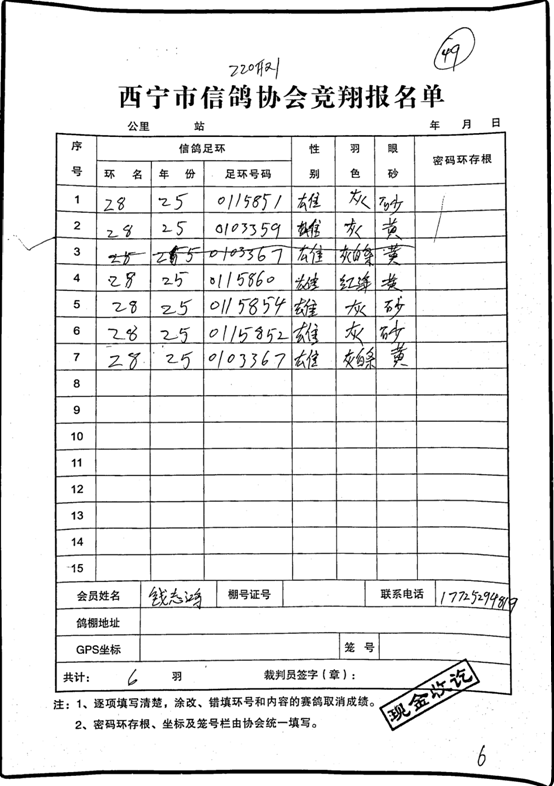 49
220羽21
西宁市信鸽协会竞翔报名单
公里 站 年 月 日
序号 信鸽足环 性别 羽色 眼砂 密码环存根
环 名 年 份 足环号码
1 28 25 0115851 雄 灰 砂
2 28 25 0103359 雄 灰 黄
3 28 25 0103367 雄 灰白条 黄
4 28 25 0115860 雄 红绛 黄
5 28 25 0115854 雄 灰 砂
6 28 25 0115852 雄 灰 砂
7 28 25 0103367 雄 灰白条 黄
8
9
10
11
12
13
14
15
会员姓名 钱志鸿 棚号证号 联系电话 17725294819
鸽棚地址
GPS坐标 笼 号
共计： 6 羽 裁判员签字（章）：
注：1、逐项填写清楚，涂改、错填环号和内容的赛鸽取消成绩。
2、密码环存根、坐标及笼号栏由协会统一填写。
现金收讫
6